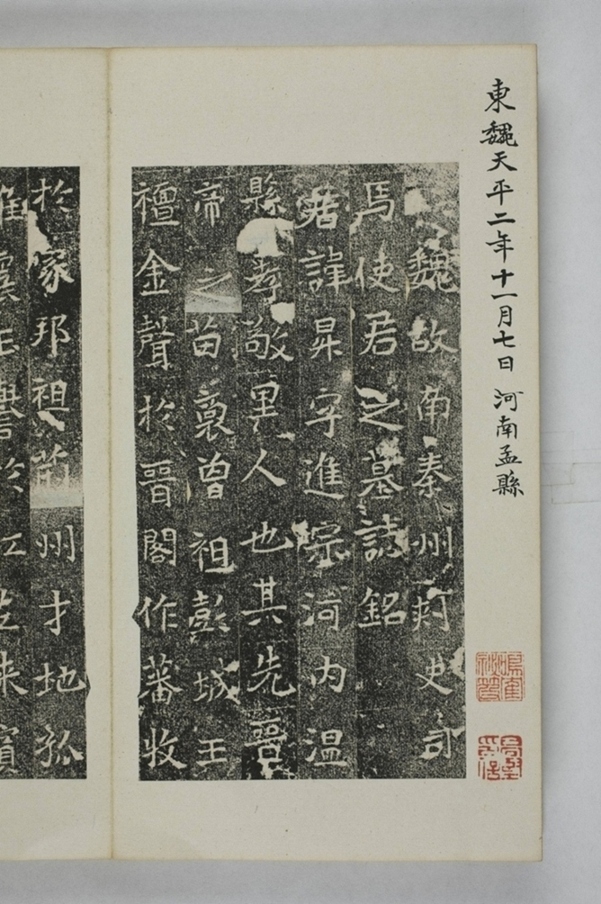 東魏天平二年十一月七日 河南孟縣
魏故南秦州刺史司
馬使君之墓誌銘
君諱昇字進宗河內溫
縣孝敬里人也其先晉
帝之苗裔曾祖彭城王
擅金聲於晉閣作蕃牧
於家邦祖荊州才地孤